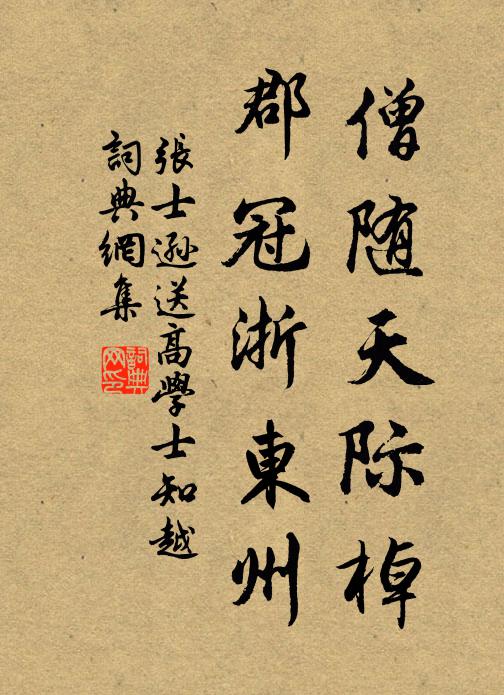 僧随天际棹
郡冠浙東州
張士遜送高學士知越
詞典網集
詞典
网印